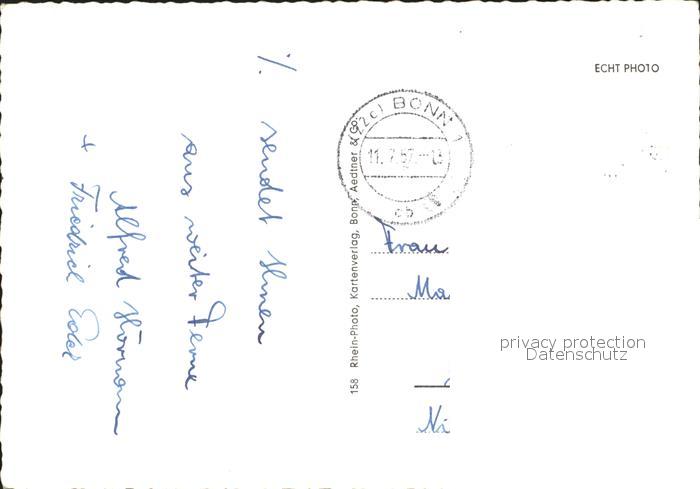 ./.
sendet Ihnen
aus weiter Ferne
Alfred
+ Friedrich
158 Rhein-Photo, Kartenverlag, Bonn, Aedtner & Co.
ECHT PHOTO
(22c) BONN 1
11.7.57.
cb
Frau
Ma
Ni
privacy protection
Datenschutz